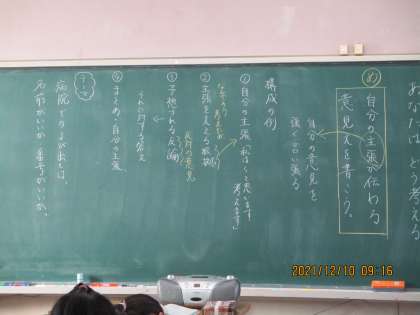 あなたはどう考える
め
自分の主張が伝わる
意見文を書こう。
自分の意見を
強く言い張る
構成の例
① 自分の主張「私は〜と思います
考えます」
② 主張を支える根拠
③ 予想される反論
反対の意見
それに対する答え
④ まとめ、自分の主張
テーマ
病院でのよび出しは、
名前がいいか 番号がいいか。
2021/12/10 09:16